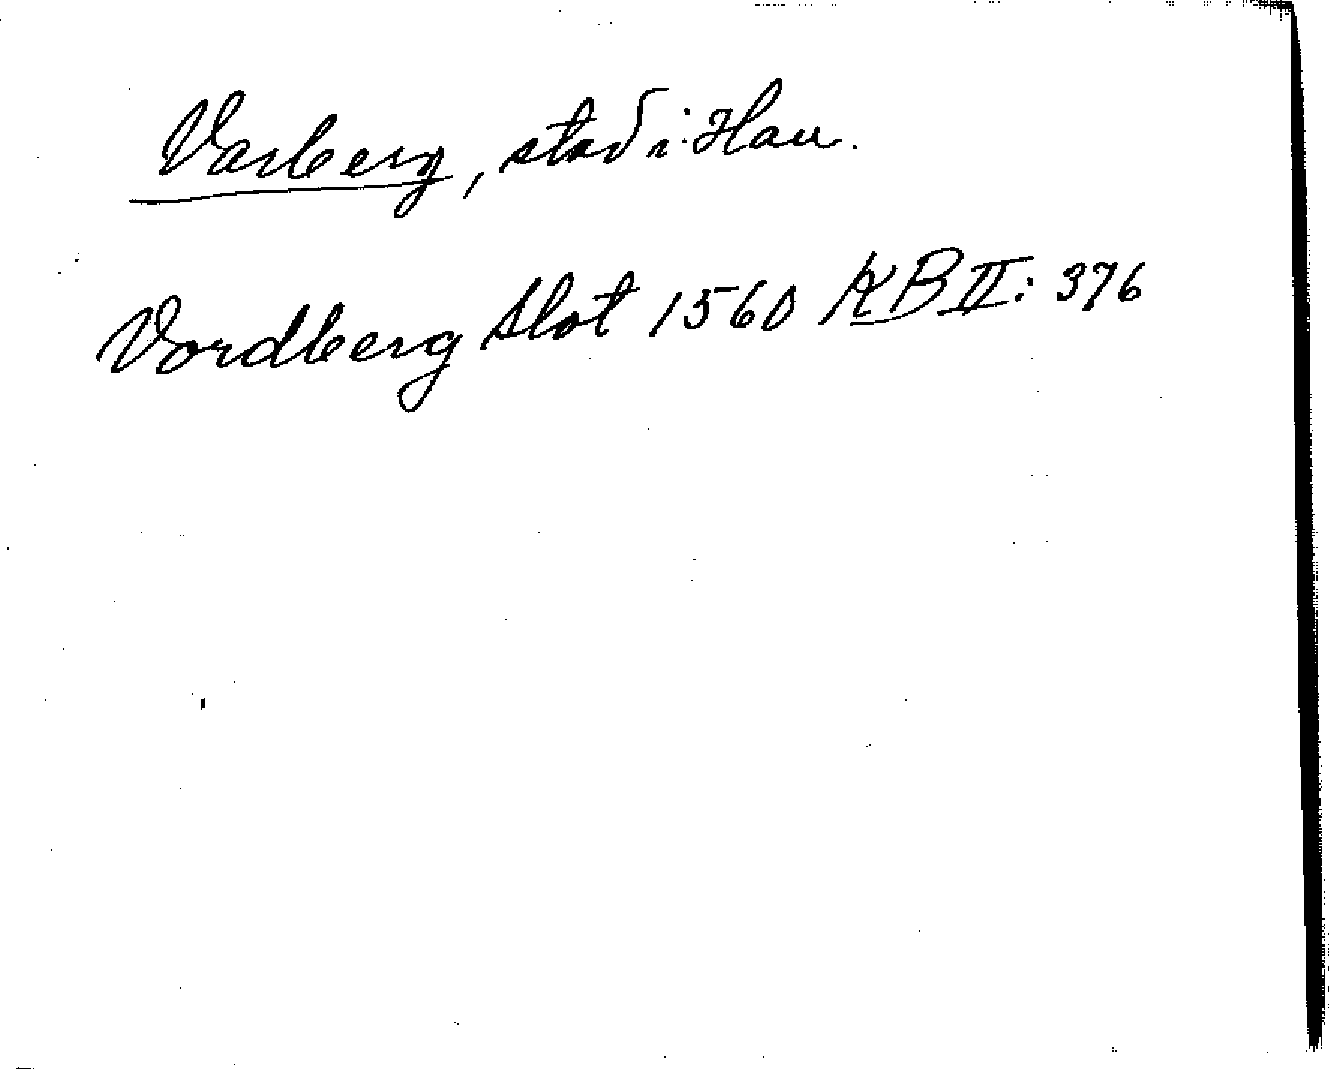 Varberg, stad i Hall.
Vordberg Slot 1560 KB II: 376